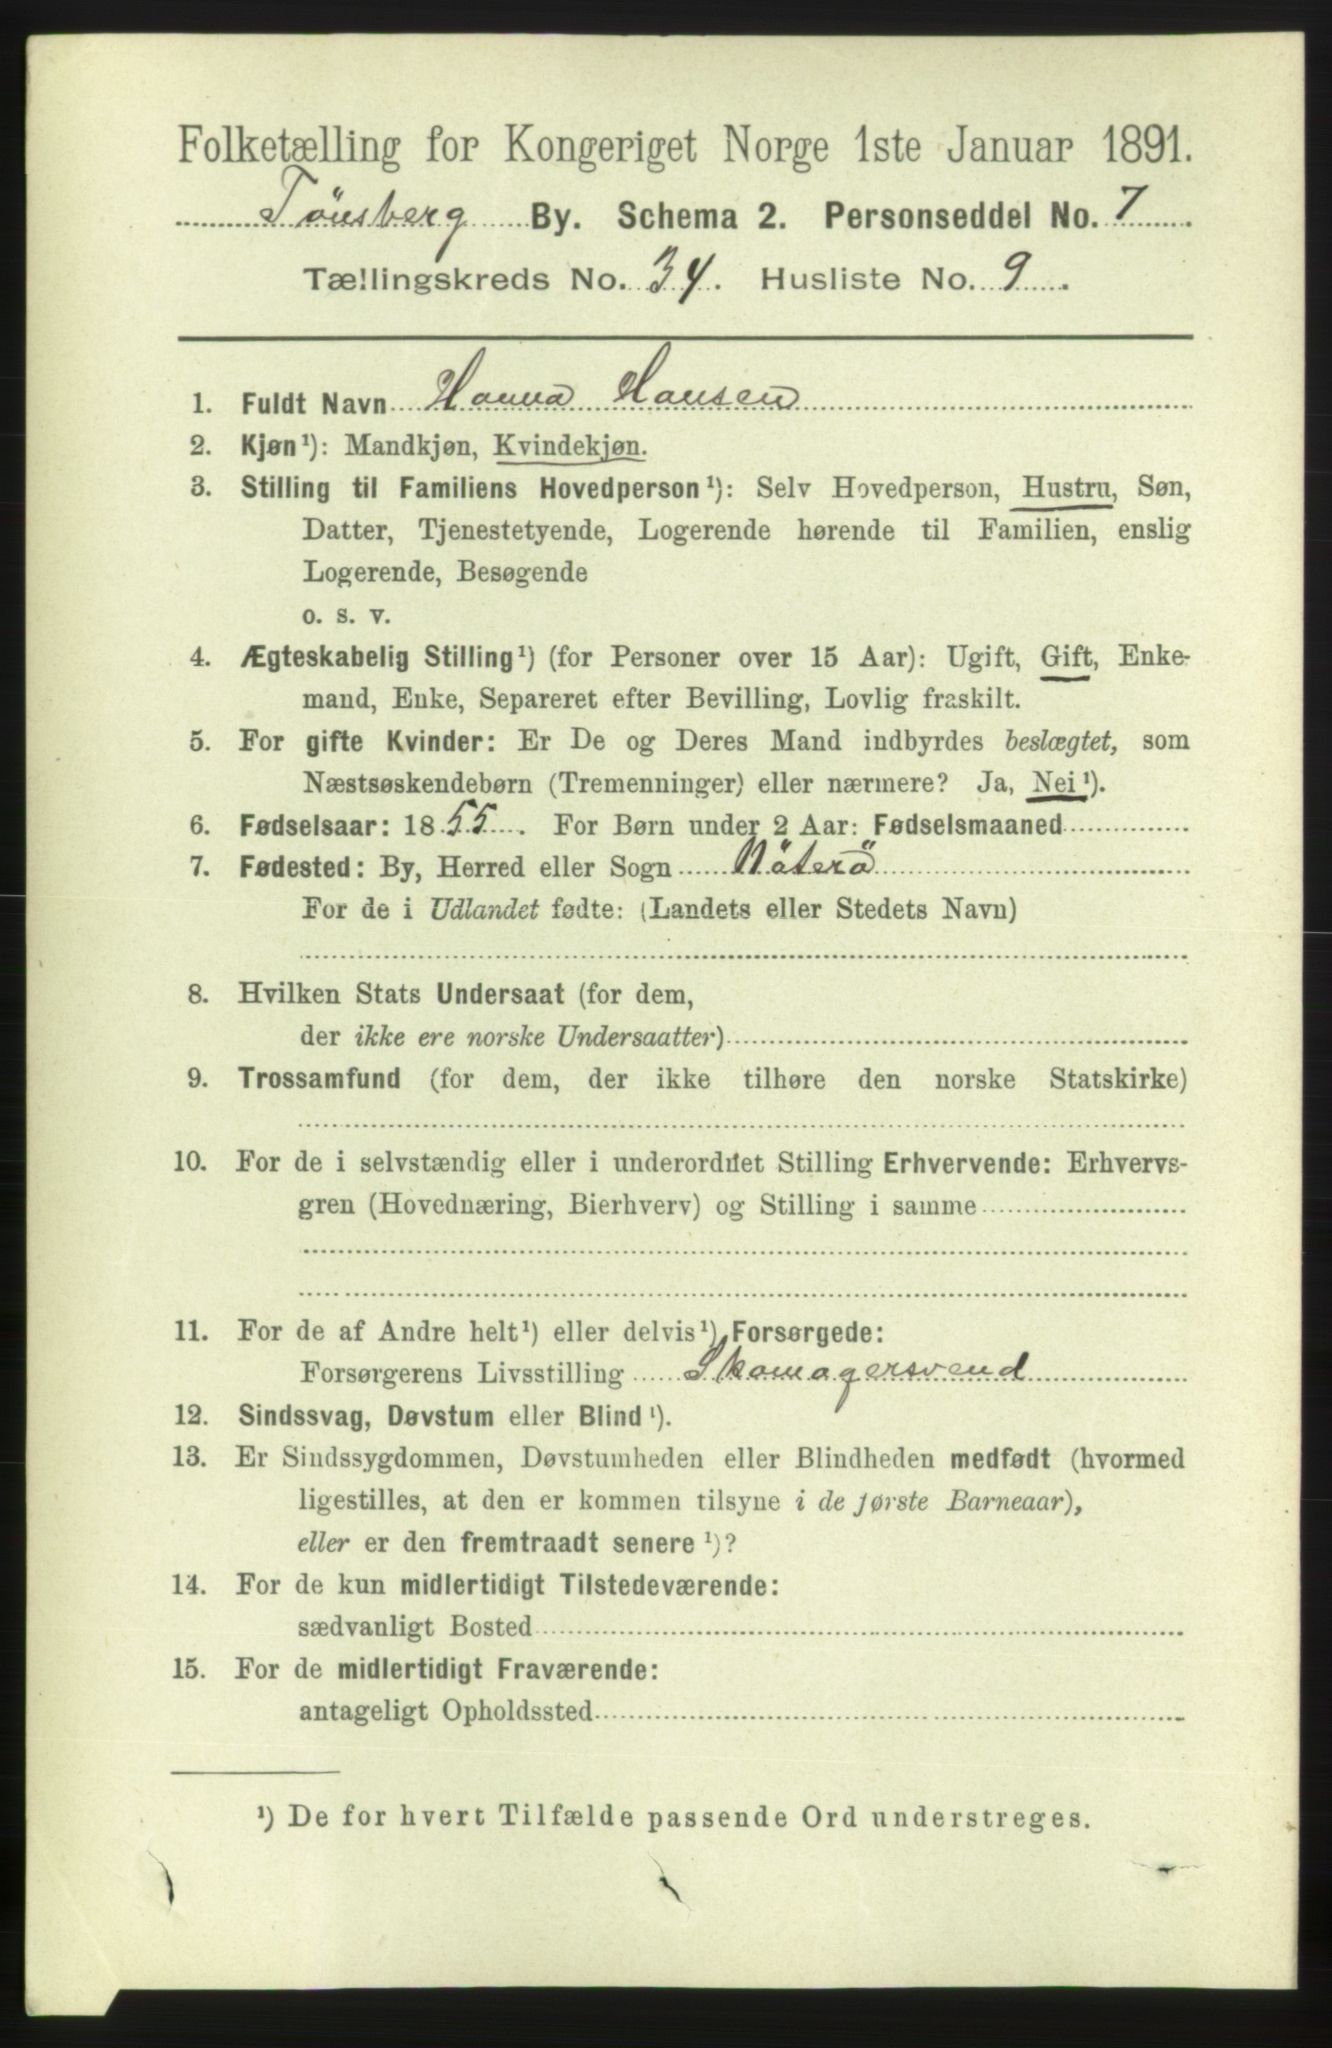 Folketælling for Kongeriget Norge 1ste Januar 1891.
Tönsberg By. Schema 2. Personseddel No. 7
Tællingskreds No. 34. Husliste No. 9.
1. Fuldt Navn Hanna Hansen
2. Kjøn¹): Mandkjøn, Kvindekjøn.
3. Stilling til Familiens Hovedperson¹): Selv Hovedperson, Hustru, Søn,
Datter, Tjenestetyende, Logerende hørende til Familien, enslig
Logerende, Besøgende
o. s. v.
4. Ægteskabelig Stilling¹) (for Personer over 15 Aar): Ugift, Gift, Enke-
mand, Enke, Separeret efter Bevilling, Lovlig fraskilt.
5. For gifte Kvinder: Er De og Deres Mand indbyrdes beslægtet, som
Næstsøskendebørn (Tremenninger) eller nærmere? Ja, Nei¹).
6. Fødselsaar: 1855. For Børn under 2 Aar: Fødselsmaaned
7. Fødested: By, Herred eller Sogn Nöterö
For de i Udlandet fødte: (Landets eller Stedets Navn)
8. Hvilken Stats Undersaat (for dem,
der ikke ere norske Undersaatter)
9. Trossamfund (for dem, der ikke tilhøre den norske Statskirke)
10. For de i selvstændig eller i underordnet Stilling Erhvervende: Erhvervs-
gren (Hovednæring, Bierhverv) og Stilling i samme
11. For de af Andre helt¹) eller delvis¹) Forsørgede:
Forsørgerens Livsstilling Skomagersvend
12. Sindssvag, Døvstum eller Blind¹).
13. Er Sindssygdommen, Døvstumheden eller Blindheden medfødt (hvormed
ligestilles, at den er kommen tilsyne i de første Barneaar),
eller er den fremtraadt senere¹)?
14. For de kun midlertidigt Tilstedeværende:
sædvanligt Bosted
15. For de midlertidigt Fraværende:
antageligt Opholdssted
¹) De for hvert Tilfælde passende Ord understreges.